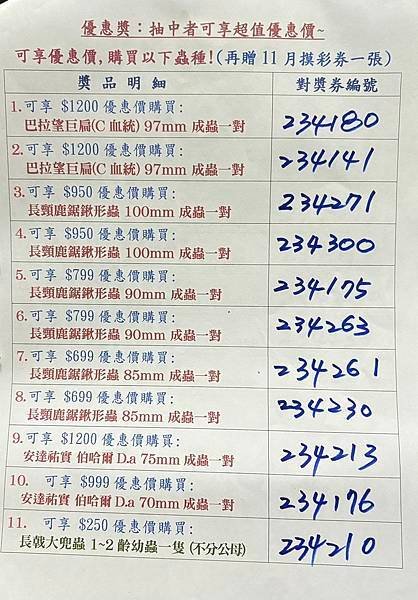 優惠獎：抽中者可享超值優惠價~
可享優惠價，購買以下蟲種！（再贈11月摸彩券一張）
獎品明細 對獎券編號
1.可享 $1200優惠價購買：
巴拉望巨扁(C血統) 97mm 成蟲一對 234180
2.可享 $1200優惠價購買：
巴拉望巨扁(C血統) 97mm 成蟲一對 234141
3.可享 $950優惠價購買：
長頸鹿鋸鍬形蟲 100mm 成蟲一對 234271
4.可享 $950優惠價購買：
長頸鹿鋸鍬形蟲 100mm 成蟲一對 234300
5.可享 $799優惠價購買：
長頸鹿鋸鍬形蟲 90mm 成蟲一對 234175
6.可享 $799優惠價購買：
長頸鹿鋸鍬形蟲 90mm 成蟲一對 234263
7.可享 $699優惠價購買：
長頸鹿鋸鍬形蟲 85mm 成蟲一對 234261
8.可享 $699優惠價購買：
長頸鹿鋸鍬形蟲 85mm 成蟲一對 234230
9.可享 $1200優惠價購買：
安達祐實 伯哈爾 D.a 75mm 成蟲一對 234213
10. 可享 $999優惠價購買：
安達祐實 伯哈爾 D.a 70mm 成蟲一對 234176
11. 可享 $250優惠價購買：
長戟大兜蟲 1~2齡幼蟲一隻 (不分公母) 234210